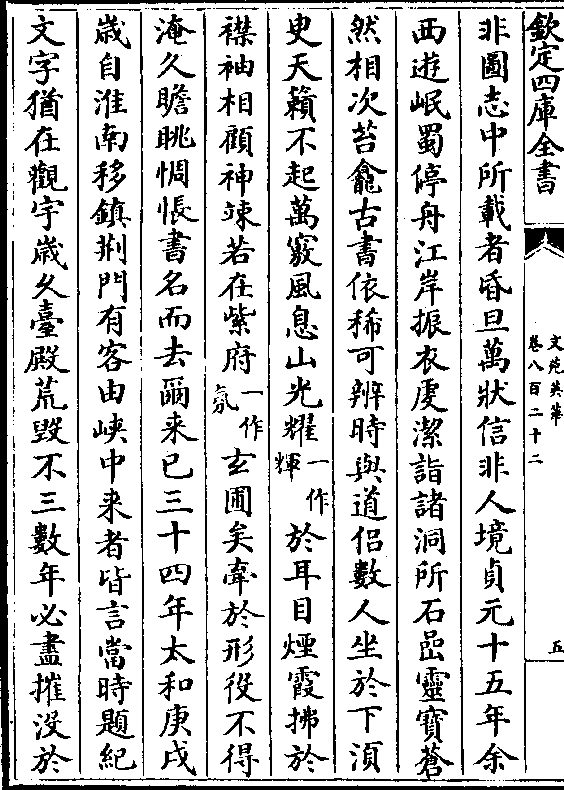 欽定四庫全書
文苑英華
卷八百二十二
五
非圖志中所載者昏旦萬狀信非人境貞元十五年余
西遊岷蜀停舟江岸振衣虔潔詣諸洞所石嵒靈寶蒼
然相次苔龕古書依稀可辨時與道侶數人坐於下湏
史天籟不起萬竅風息山光耀一作輝於耳目煙霞拂於
襟袖相顧神竦若在紫府一作氛玄圃矣牽於形役不得
淹久瞻眺惆悵書名而去爾来已三十四年太和庚戌
歲自淮南移鎮荆門有客由峽中来者皆言當時題紀
文字猶在觀宇歲久臺殿荒毀不三數年必盡摧没於